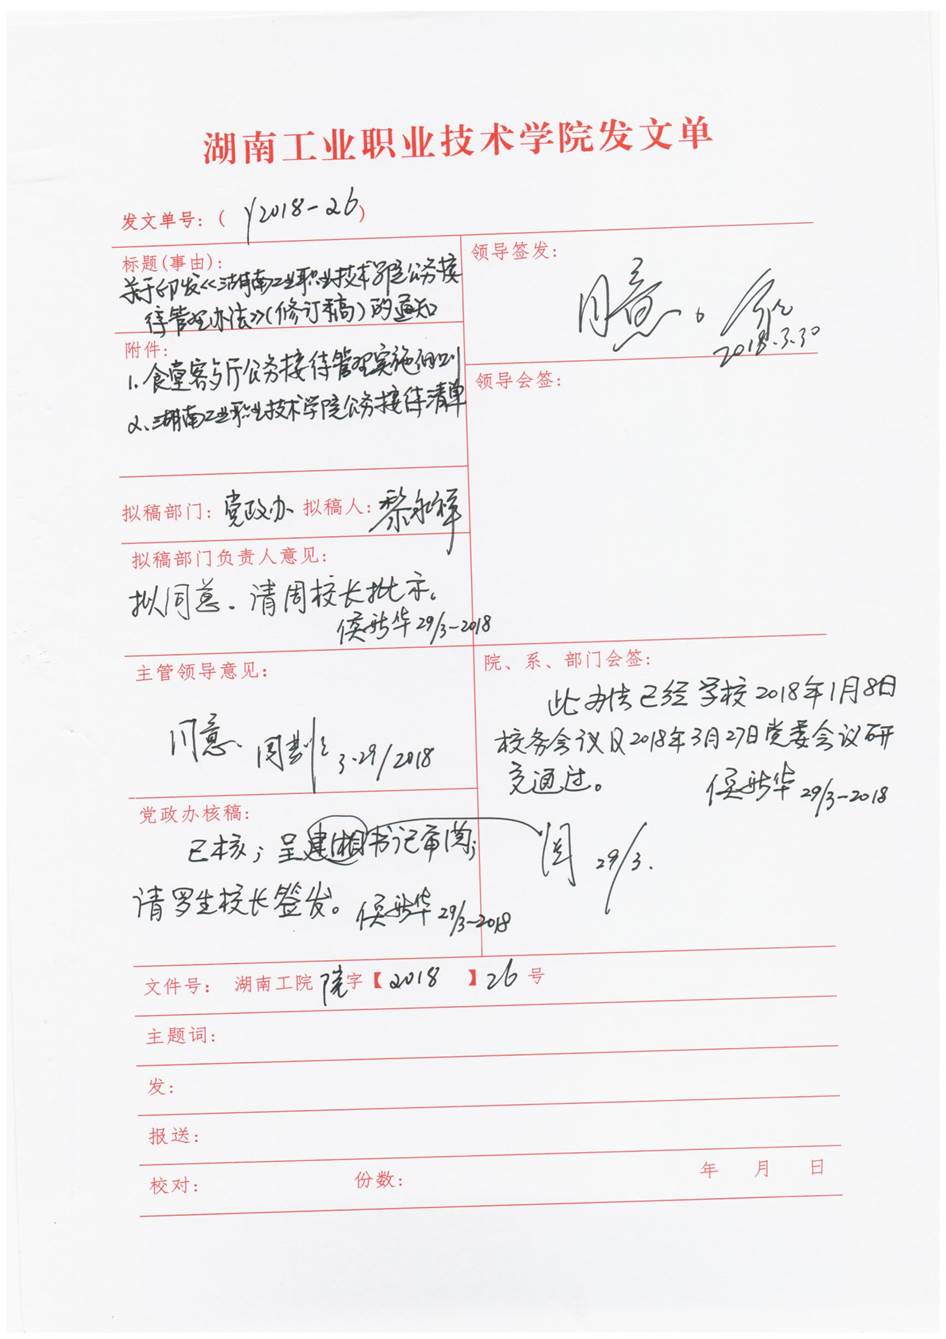 湖南工业职业技术学院发文单
发文单号:( y2018-26 )
标题(事由):
关于印发《湖南工业职业技术学院公务接
待管理办法》(修订稿)的通知
领导签发:
同意。
2018.3.30
附件:
1. 食堂客与厅公务接待管理实施细则
2、湖南工业职业技术学院公务接待清单
领导会签:
拟稿部门: 党政办 拟稿人: 黎
拟稿部门负责人意见:
拟同意。请周校长批示。
侯新华 29/3-2018
主管领导意见:
同意 周 3.29/2018
院、系、部门会签:
此办法已经学校2018年1月8日
校务会议及2018年3月27日党委会议研
究通过。
侯新华 29/3-2018
党政办核稿:
已核;呈建湘书记审阅;
请罗生校长签发。 侯新华 29/3-2018
阅 29/3.
文件号: 湖南工院 院 字【2018】26 号
主题词:
发:
报送:
校对: 份数: 年 月 日